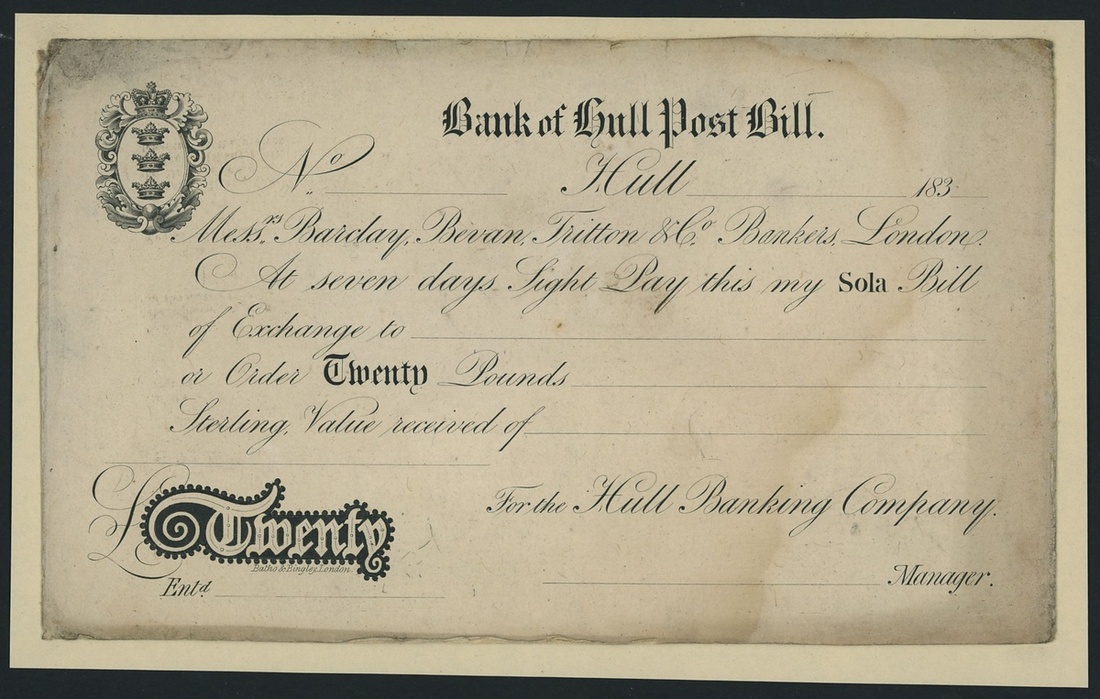 Bank of Hull Post Bill.
No Hull 183
Messrs. Barclay, Bevan, Tritton & Co. Bankers, London.
At seven days Sight Pay this my Sola Bill
of Exchange to
or Order Twenty Pounds
Sterling, Value received of
For the Hull Banking Company.
£ Twenty
Batho & Bingley, London.
Entd. Manager.